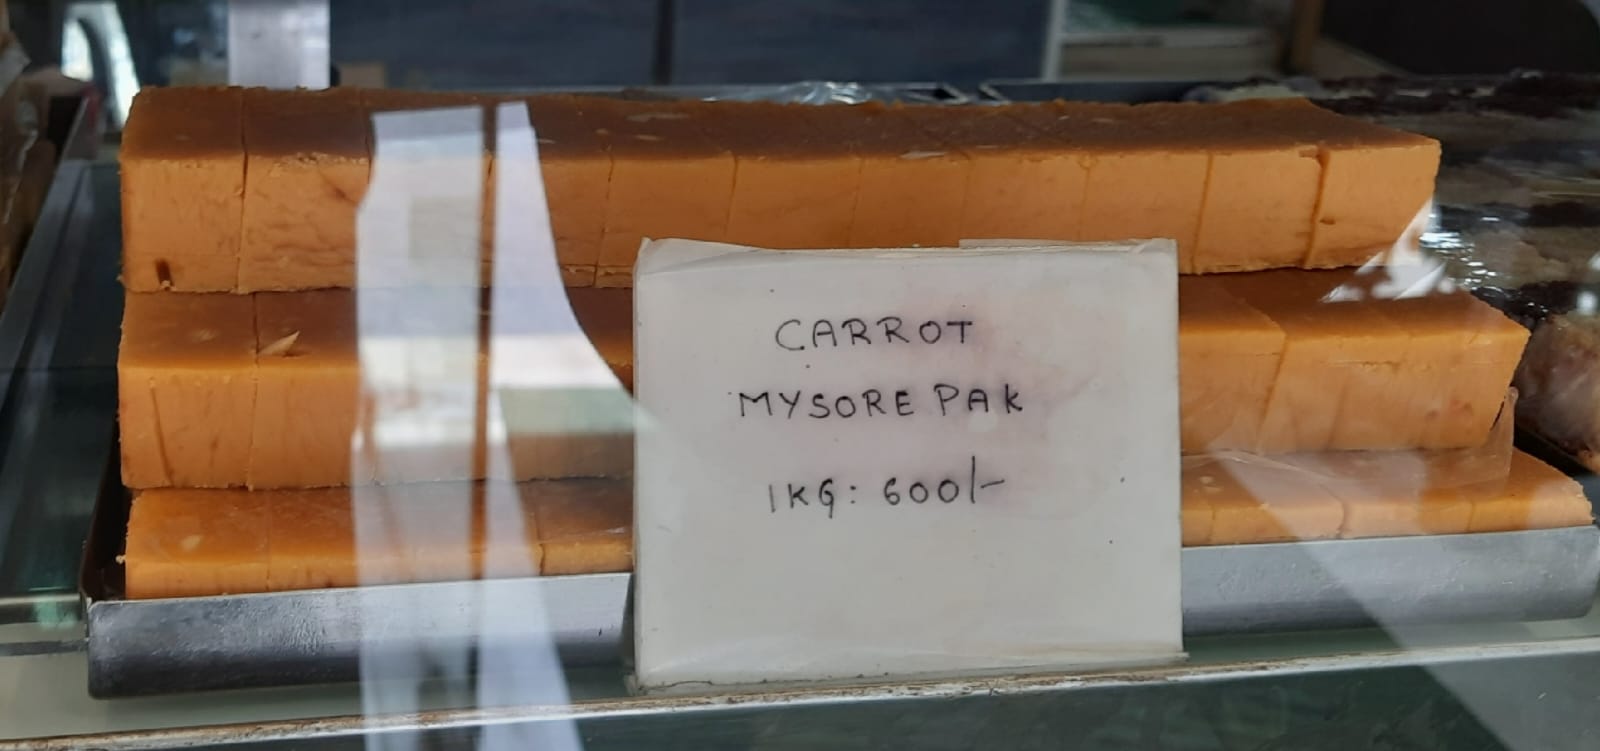 CARROT
MYSORE PAK
1KG: 600/-